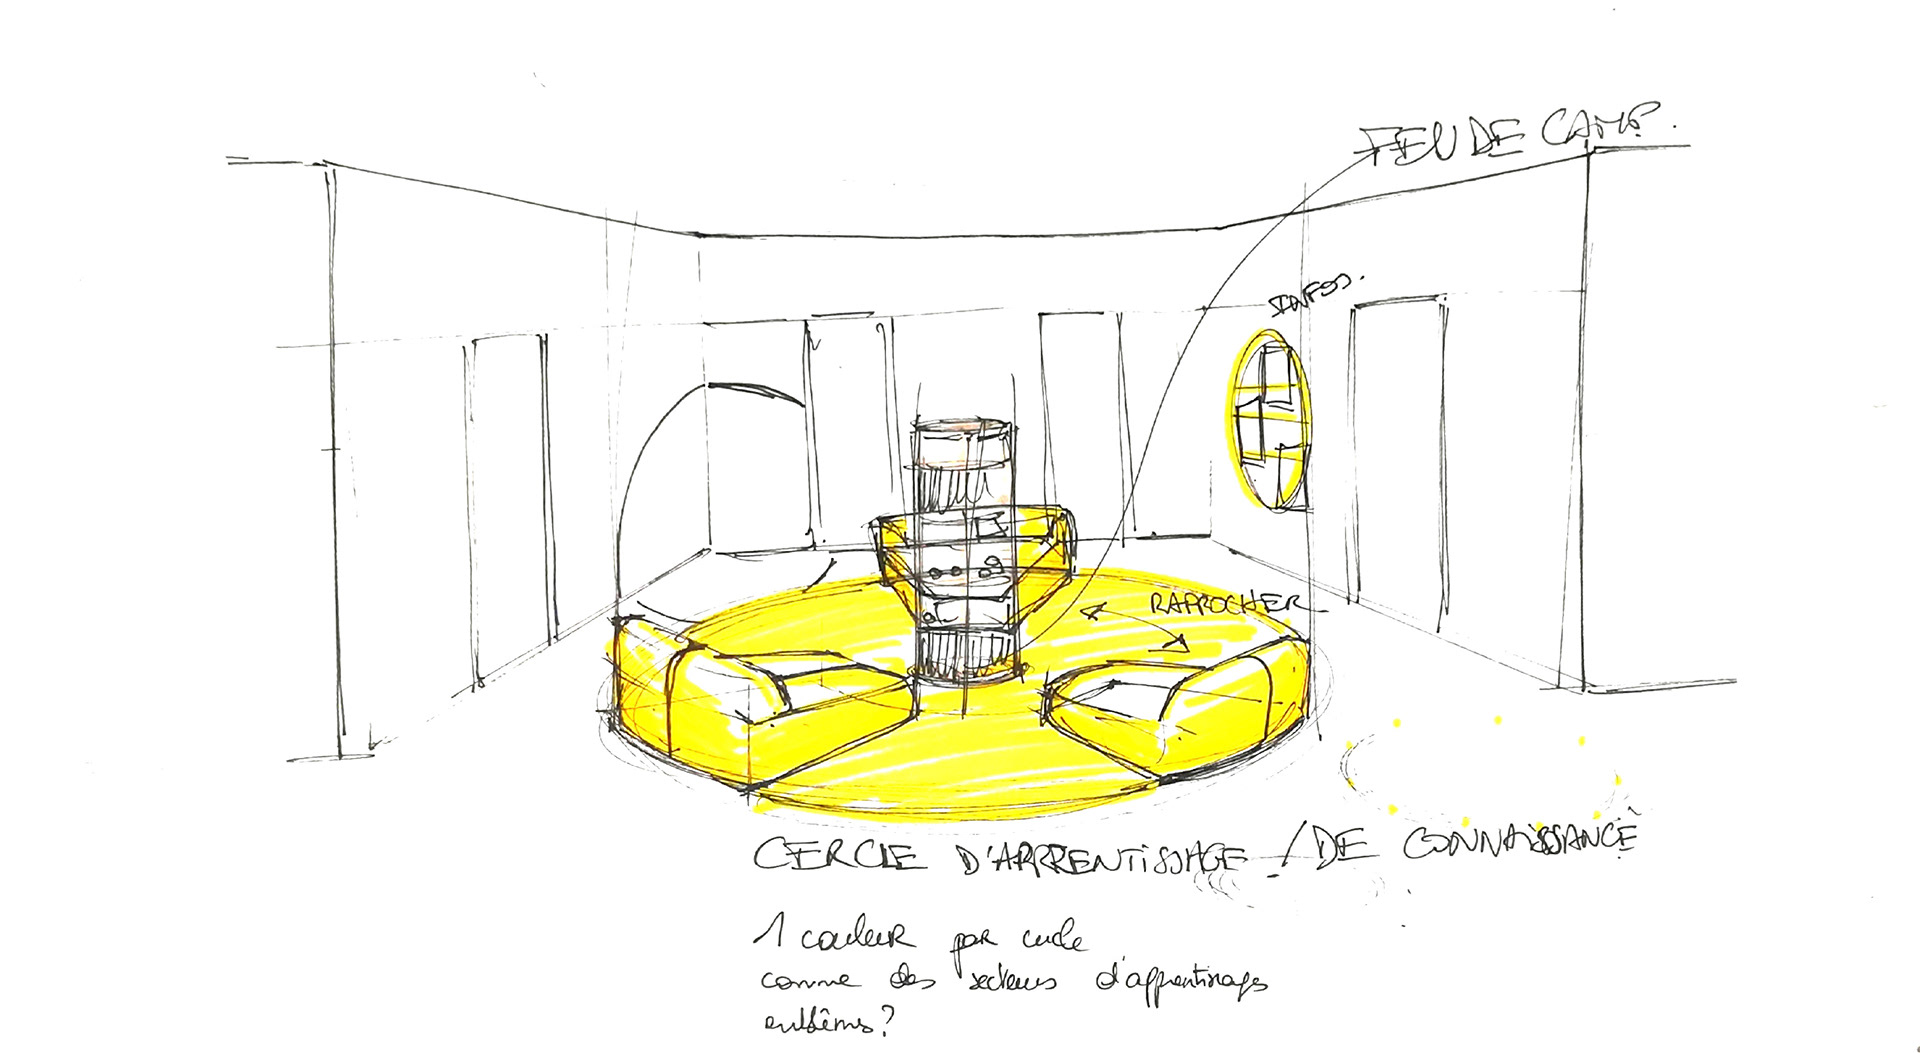 FEU DE CAMP.
INFOS.
RAPPROCHER
CERCLE D'APPRENTISSAGE / DE CONNAISSANCE
1 couleur par cercle
comme des secteurs d'apprentissages
emblèmes?